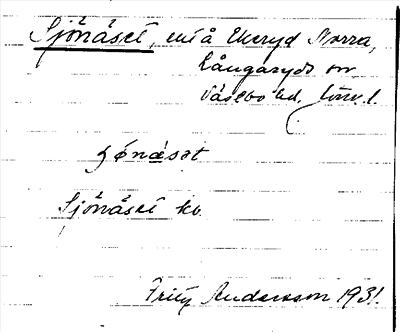 Sjönäset, enl å Ekeryd Norra,
Långaryds sn
Västbo hd, Jönk. l.
ʃǿnä̀sət
Sjönäset kb.
Fritz Andersson 1931.